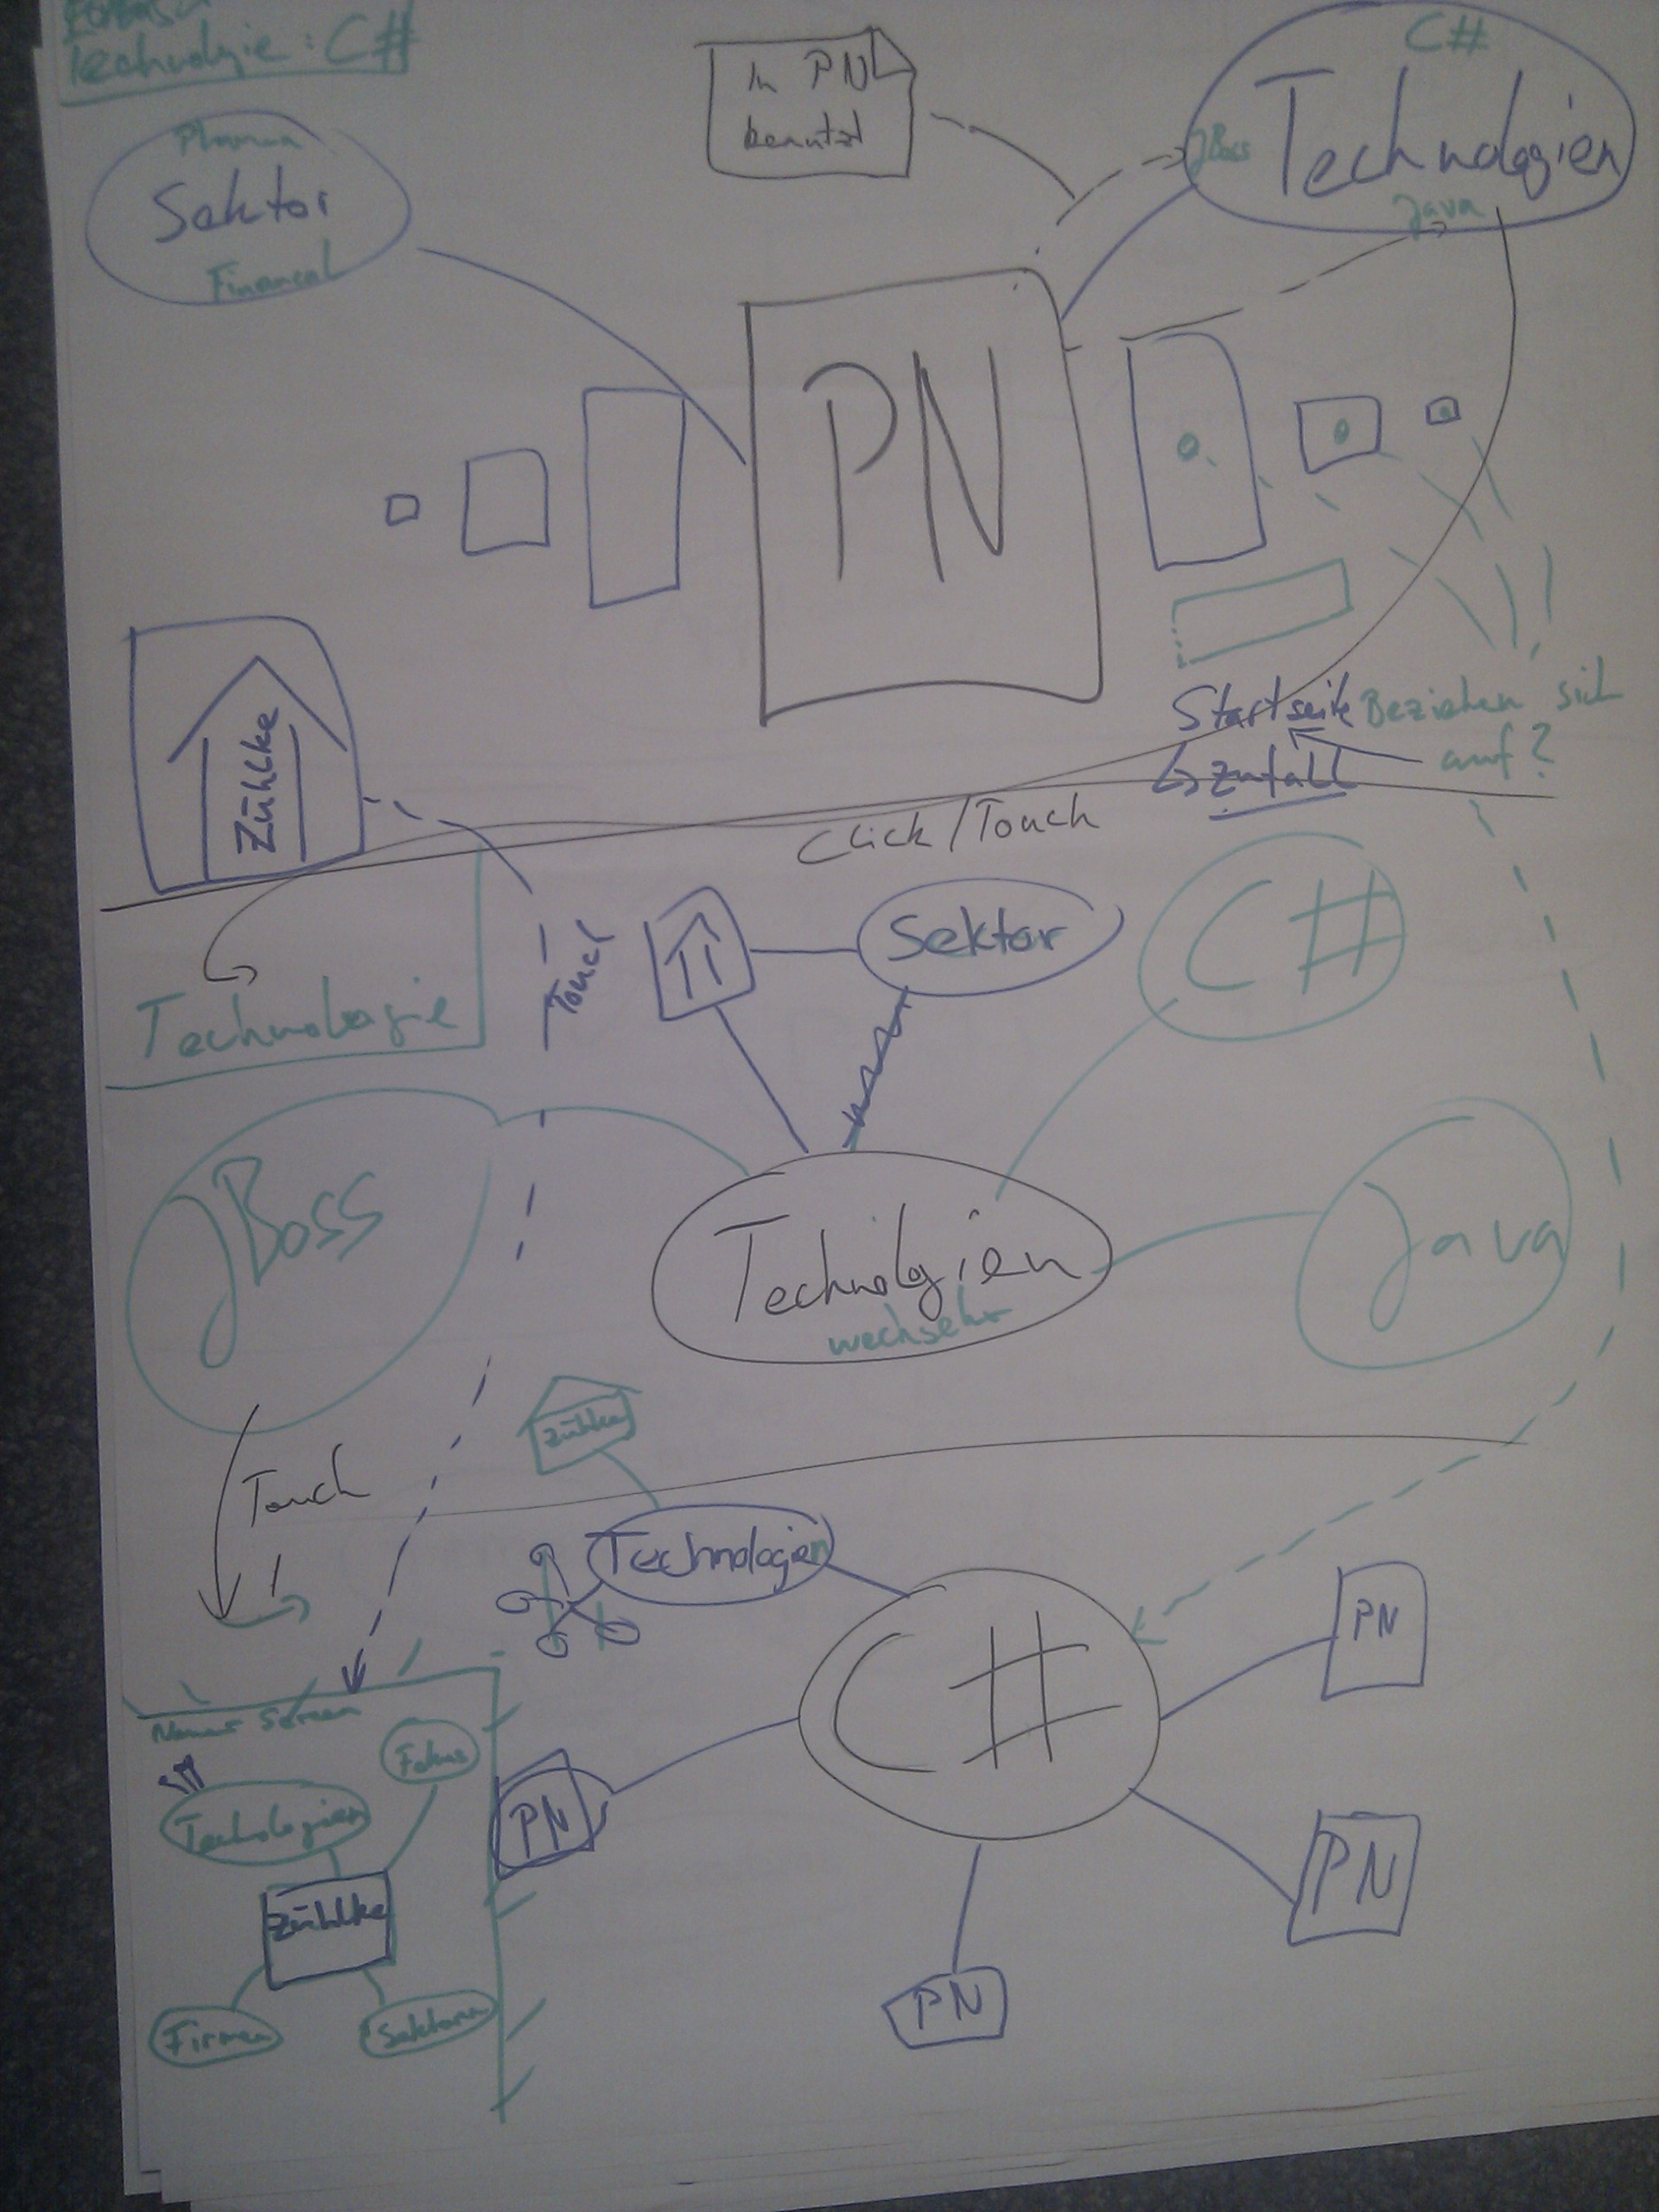 Technologie: C#
In PN
benutzt
C#
Technologien
JBoss
Java
Pharma
Sektor
Financal
PN
Zühlke
Startseite
Zufall
Beziehen sich
auf?
Click/Touch
Technologie
Touch
Sektor
C#
JBoss
Technologien
wechseln
Java
Touch
Zühlke
Technologien
C#
PN
PN
PN
PN
Neuer Screen
Fokus
Technologien
Zühlke
Firmen
Sektoren